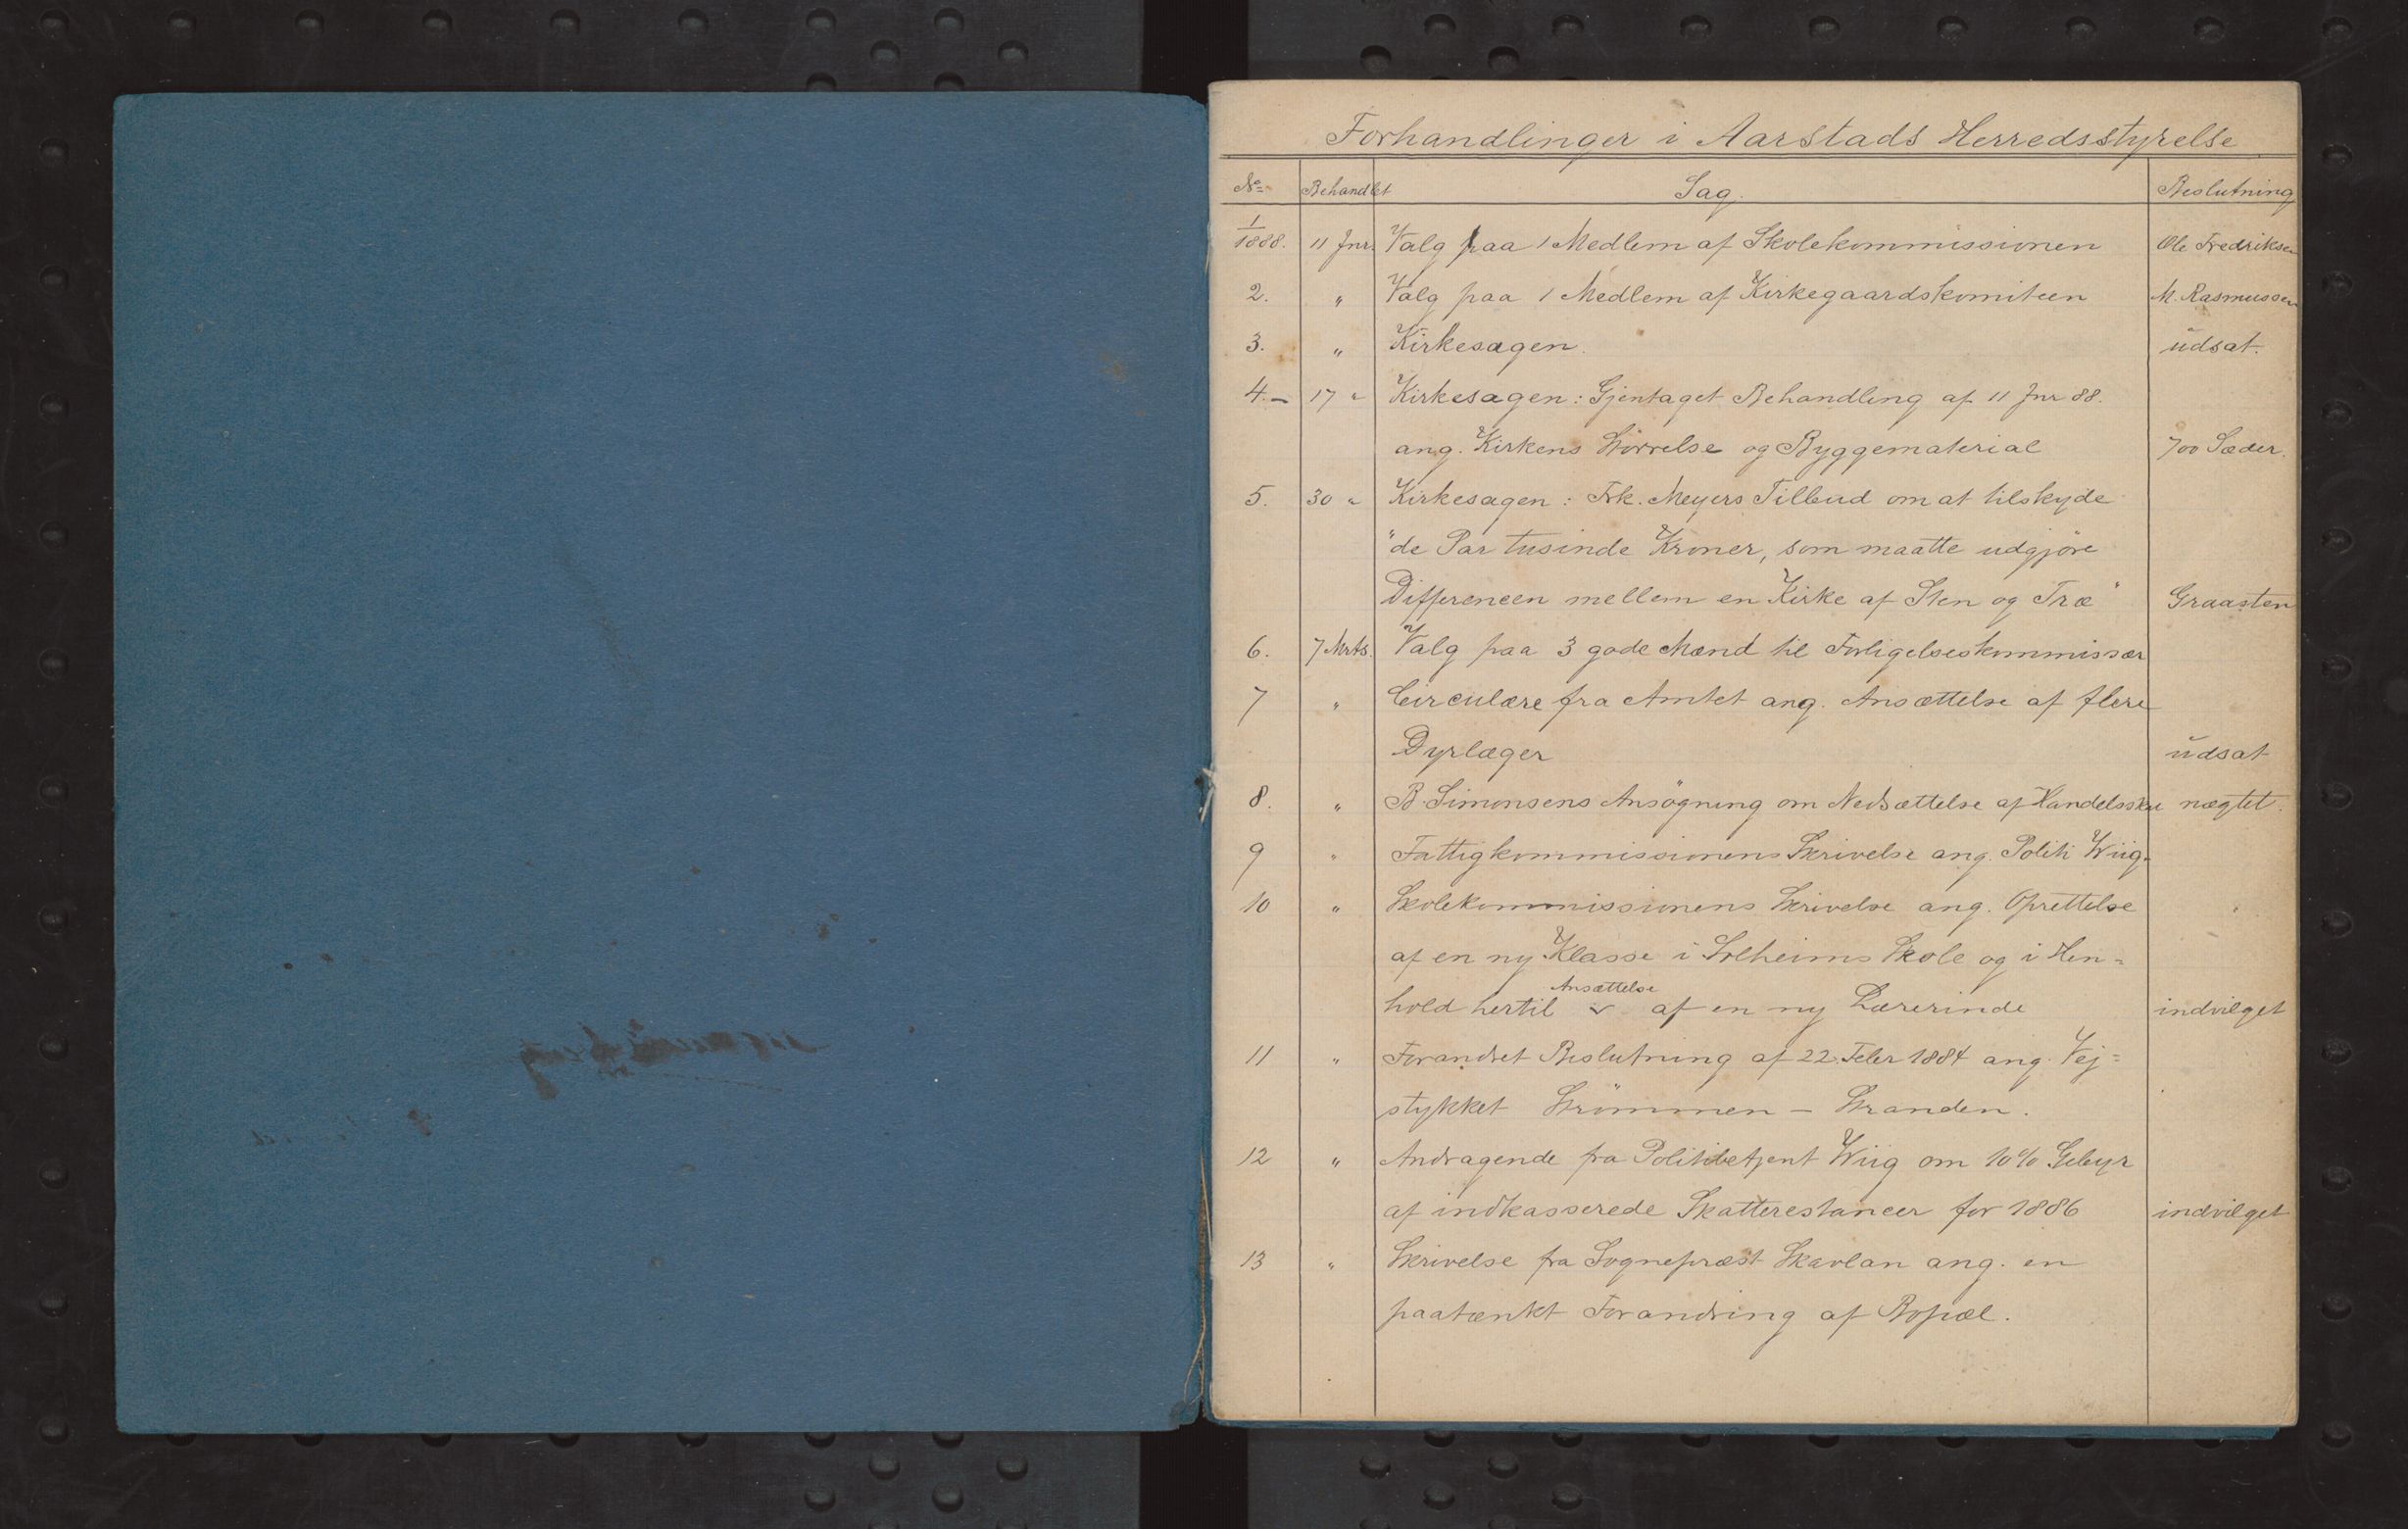 Forhandlinger i Aarstads Herredsstyrelse
No Behandlet Sag. Beslutning
1/1888. 11 Jnr. Valg paa 1 Medlem af Skolekommissionen Ole Fredriksen
2. " Valg paa 1 Medlem af Kirkegaardskomiteen M. Rasmussen
3. " Kirkesagen. udsat.
4.- 17 " Kirkesagen: Gjentaget Behandling af 11 Jnr 88.
ang. Kirkens Störrelse og Byggematerial 700 Sæder.
5. 30 " Kirkesagen: Frk. Meyers Tilbud om at tilskyde
"de Par tusinde Kroner, som maatte udgjöre
Differencen mellem en Kirke af Sten og Træ" Graasten
6. 7 Mrts. Valg paa 3 gode Mænd til Forligelseskommissær
7 " Circulære fra Amtet ang. Ansættelse af flere
Dyrlæger udsat
8. " B. Simonsens Ansögning om Nedsættelse af Handelsskat nægtet.
9 " Fattigkommissionens Skrivelse ang. Politi Wiig.
10 " Skolekommissionens Skrivelse ang. Oprettelse "
af en ny Klasse i Solheims Skole og i Hen=
hold hertil Ansættelse af en ny Lærerinde indvilget
11 " Forandret Beslutning af 22. Febr 1884 ang. Vej=
stykket Strömmen - Stranden.
12 " Andragende fra Politibetjent Wiig om 10% Gebyr
af indkasserede Skatterestancer for 1886 indvilget
13 " Skrivelse fra Sognepræst Skavlan ang. en
paatænkt Forandring af Bopæl.